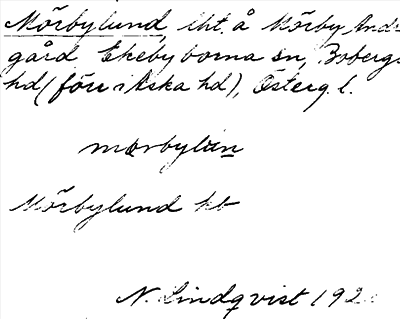 Mörbylund, lht. å Mörby Andr
gård Ekebyborna sn, Bobergs
hd (förr i Aska hd), Österg. l.
mørbylun
Mörbylund hb
N. Lindqvist 192